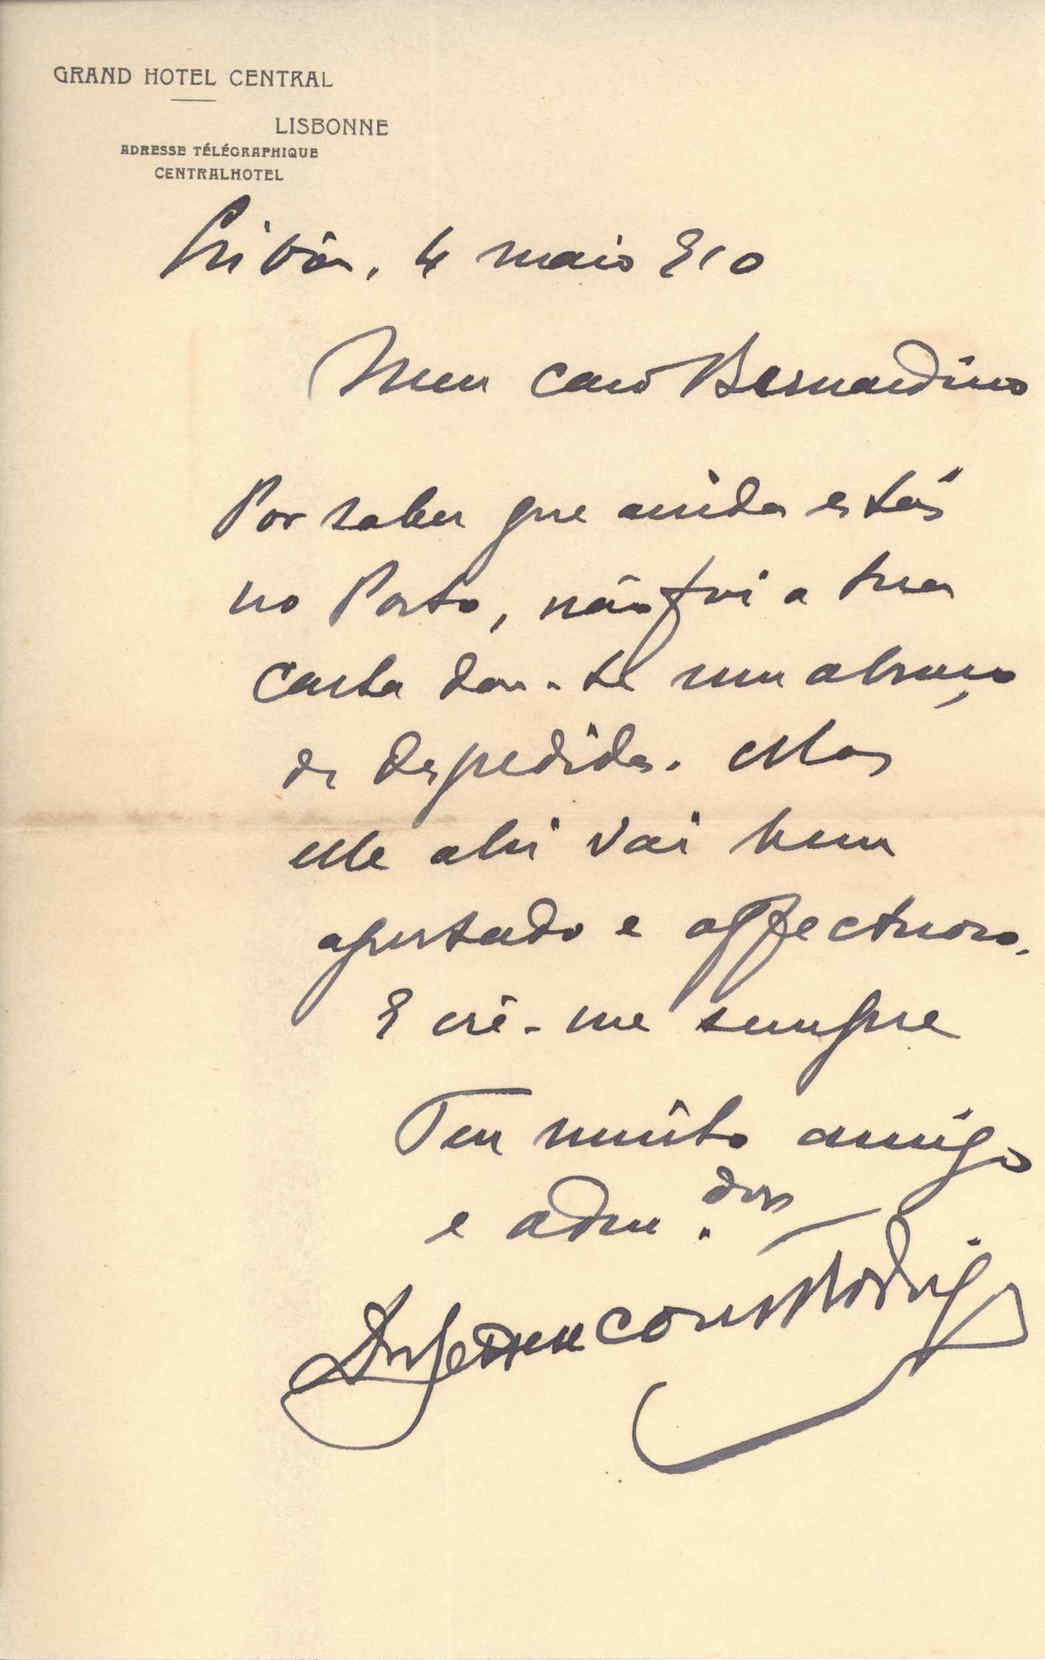 GRAND HOTEL CENTRAL
LISBONNE
ADRESSE TÉLÉGRAPHIQUE
CENTRALHOTEL
Lisbôa, 4 maio 910
Meu caro Bernardino
Por saber que ainda estás
no Porto, não fui a tua
casta dar-te um abraço
de despedida. Mas
elle ahi vai bem
apertado e affectuoso.
E crê-me sempre
Teu muito amigo
e adm.dor